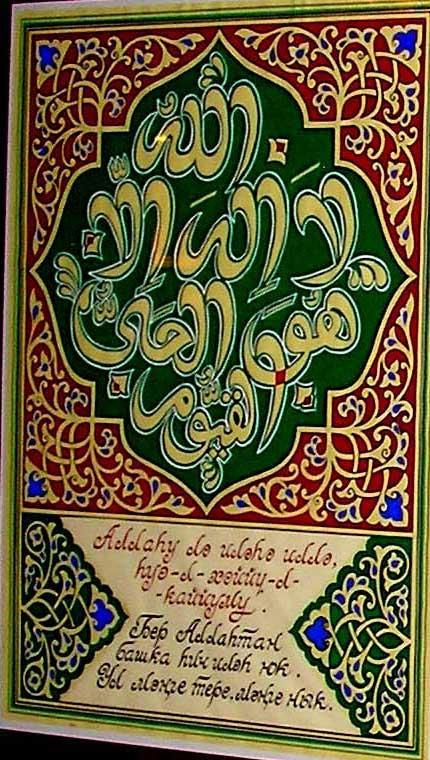 الله
لا اله الا
هو الحي
القيوم
Аллаһу лә иләһә иллә,
һүә-л-хәййу-л-
-каййүмү.
Бер Аллаһтан
башка һич иләһ юк.
Ул мәңге тере. мәңге нык.